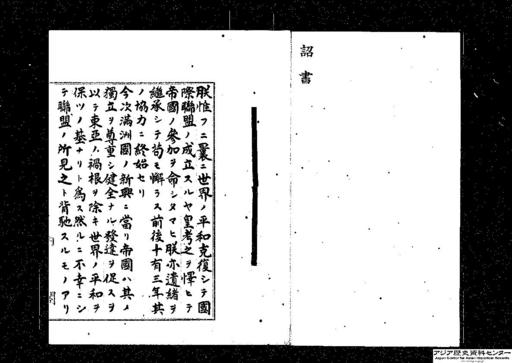 詔書
朕惟フニ曩ニ世界ノ平和克復シテ國
際聯盟ノ成立スルヤ皇考之ヲ懌ヒテ
帝國ノ參加ヲ命シタマヒ朕亦遺緒ヲ
繼承シテ苟モ懈ラス前後十有三年其
ノ協力ニ終始セリ
今次滿洲國ノ新興ニ當リ帝國ハ其ノ
獨立ヲ尊重シ健全ナル發達ヲ促スヲ
以テ東亞ノ禍根ヲ除キ世界ノ平和ヲ
保ツノ基ナリト爲ス然ルニ不幸ニシ
テ聯盟ノ所見之ト背馳スルモノアリ
閣
アジア歴史資料センター
Japan Center for Asian Historical Records